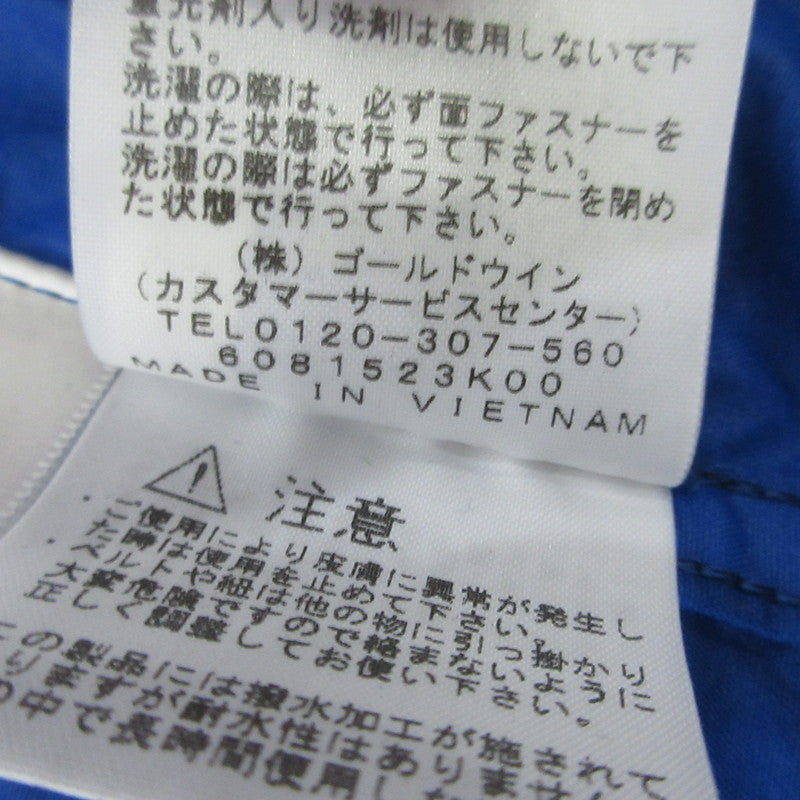 光剤入り洗剤は使用しないで下
さい。
洗濯の際は、必ず面ファスナーを
止めた状態で行って下さい。
洗濯の際は必ずファスナーを閉め
た状態で行って下さい。
(株) ゴールドウイン
(カスタマーサービスセンター)
TEL0120-307-560
6081523K00
MADE IN VIETNAM
注意
・ご使用により皮膚に異常が発生し
た時は使用を止めて下さい。
・ベルトや紐は他の物に引っ掛かり
大変危険ですので絡まないように
正しく調整してお使い下さい。
この製品には撥水加工が施されて
りますが耐水性はありません
の中で長時間使用し